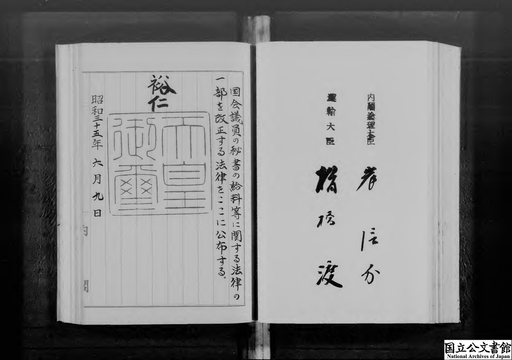 内閣総理大臣 岸信介
運輸大臣 楢橋渡
国会議員の秘書の給料等に関する法律の
一部を改正する法律をここに公布する。
裕仁
天皇
御璽
昭和三十五年六月九日
国立公文書館
National Archives of Japan